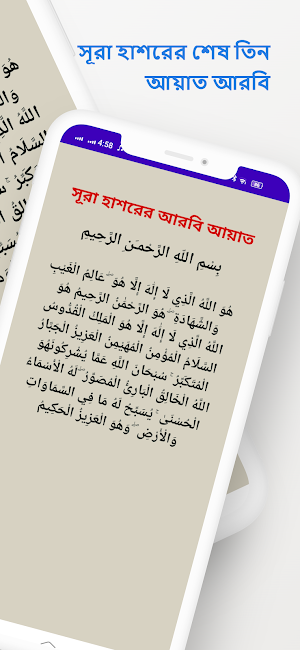 সূরা হাশরের শেষ তিন
আয়াত আরবি
4:58
সূরা হাশরের আরবি আয়াত
بِسْمِ اللَّهِ الرَّحْمَنِ الرَّحِيمِ
هُوَ اللَّهُ الَّذِي لَا إِلَهَ إِلَّا هُوَ ۖ عَالِمُ الْغَيْبِ
وَالشَّهَادَةِ ۖ هُوَ الرَّحْمَنُ الرَّحِيمُ هُوَ
اللَّهُ الَّذِي لَا إِلَهَ إِلَّا هُوَ الْمَلِكُ الْقُدُّوسُ
السَّلَامُ الْمُؤْمِنُ الْمُهَيْمِنُ الْعَزِيزُ الْجَبَّارُ
الْمُتَكَبِّرُ ۚ سُبْحَانَ اللَّهِ عَمَّا يُشْرِكُونَهُوَ
اللَّهُ الْخَالِقُ الْبَارِئُ الْمُصَوِّرُ ۖ لَهُ الْأَسْمَاءُ
الْحُسْنَى ۚ يُسَبِّحُ لَهُ مَا فِي السَّمَاوَاتِ
وَالْأَرْضِ ۖ وَهُوَ الْعَزِيزُ الْحَكِيمُ